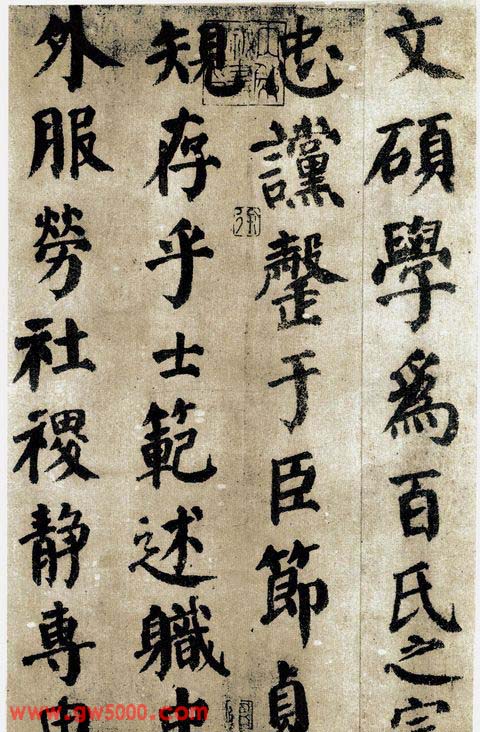 文碩學爲百氏之宗
忠讜罄于臣節貞
規存乎士範述職中
外服勞社稷静專由
www.gw5000.com